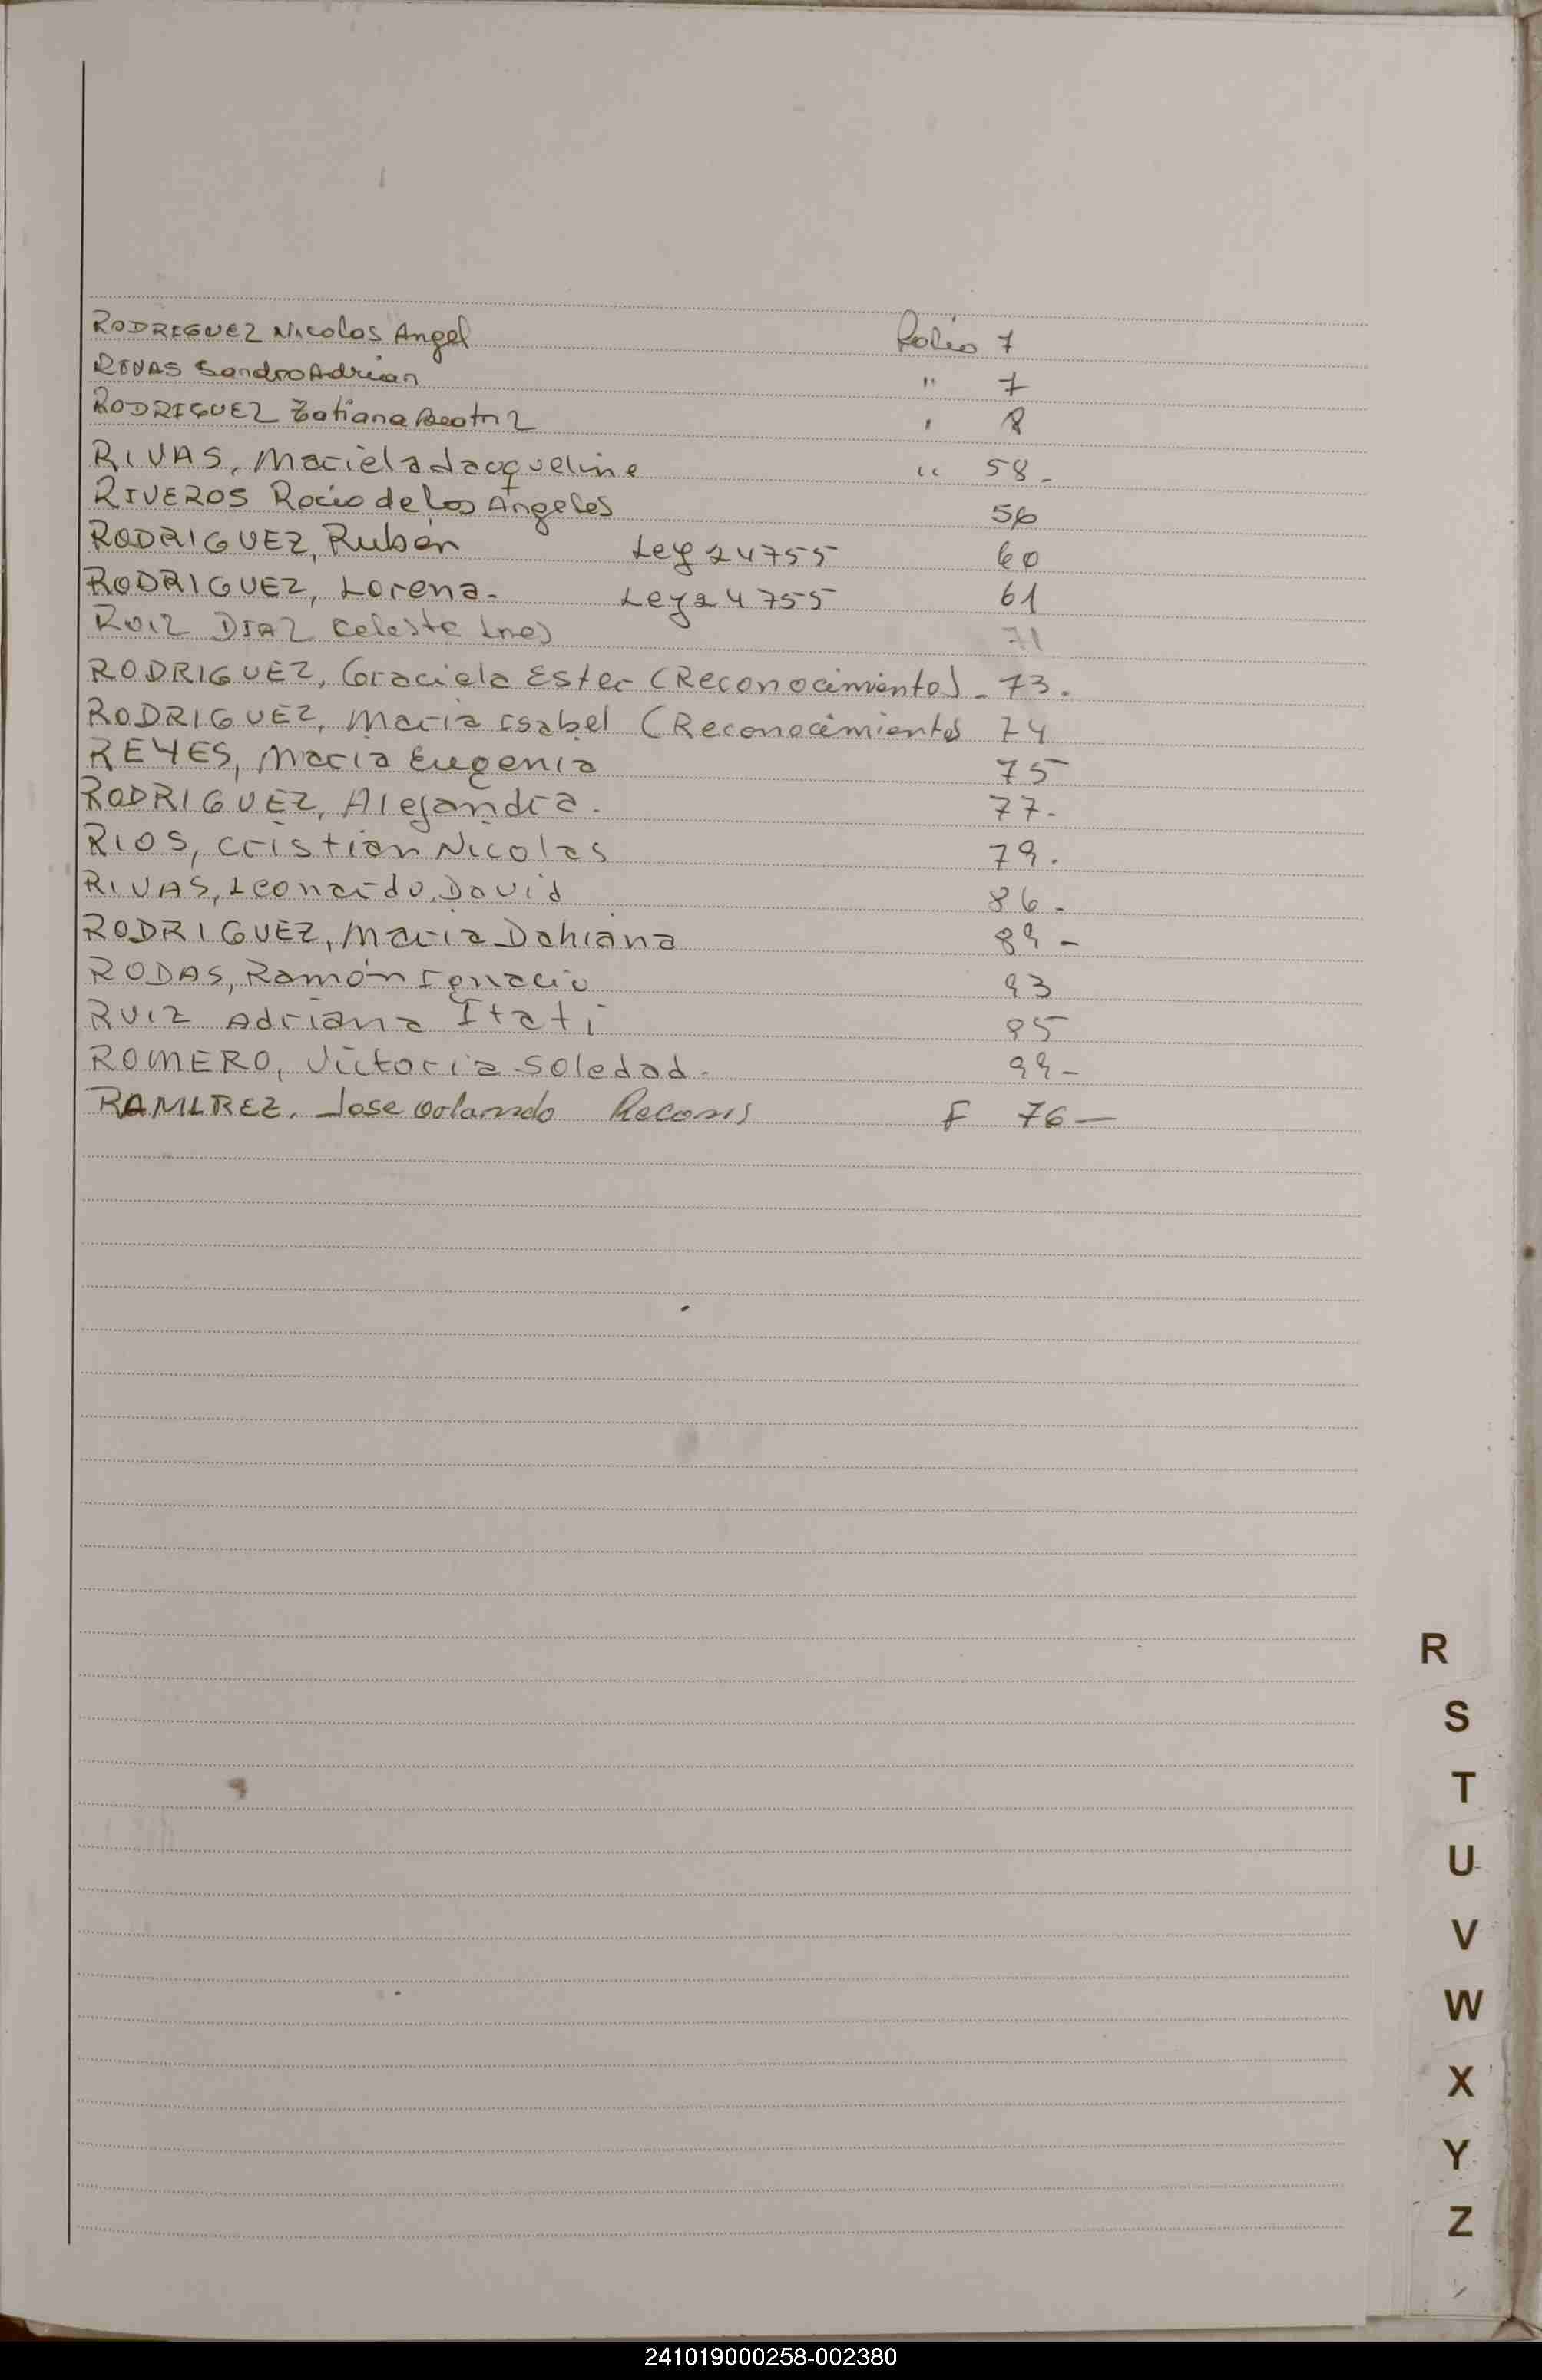 RODRIGUEZ Nicolas Angel Folio 7
RIVAS Sandro Adrian " 7
RODRIGUEZ Tatiana Beatriz " 8
RIVAS, Mariela Jacqueline " 58-
RIVEROS Rocio de los Angeles 56
RODRIGUEZ, Rubén Ley 24755 60
RODRIGUEZ, Lorena- Ley 24755 61
RUIZ DIAZ Celeste Ines 71
RODRIGUEZ, Graciela Ester (Reconocimiento)- 73.
RODRIGUEZ, Maria Isabel (Reconocimiento) 74
REYES, Maria Eugenia 75
RODRIGUEZ, Alejandra. 77-
RIOS, Cristian Nicolas 79.
RIVAS, Leonardo David 86-
RODRIGUEZ, Maria Dahiana 89-
RODAS, Ramón Ignacio 93
RUIZ Adriana Itati 95
ROMERO, Victoria Soledad. 99-
RAMIREZ. Jose Orlando F 76-
R
S
T
U
V
W
X
Y
Z
241019000258-002380